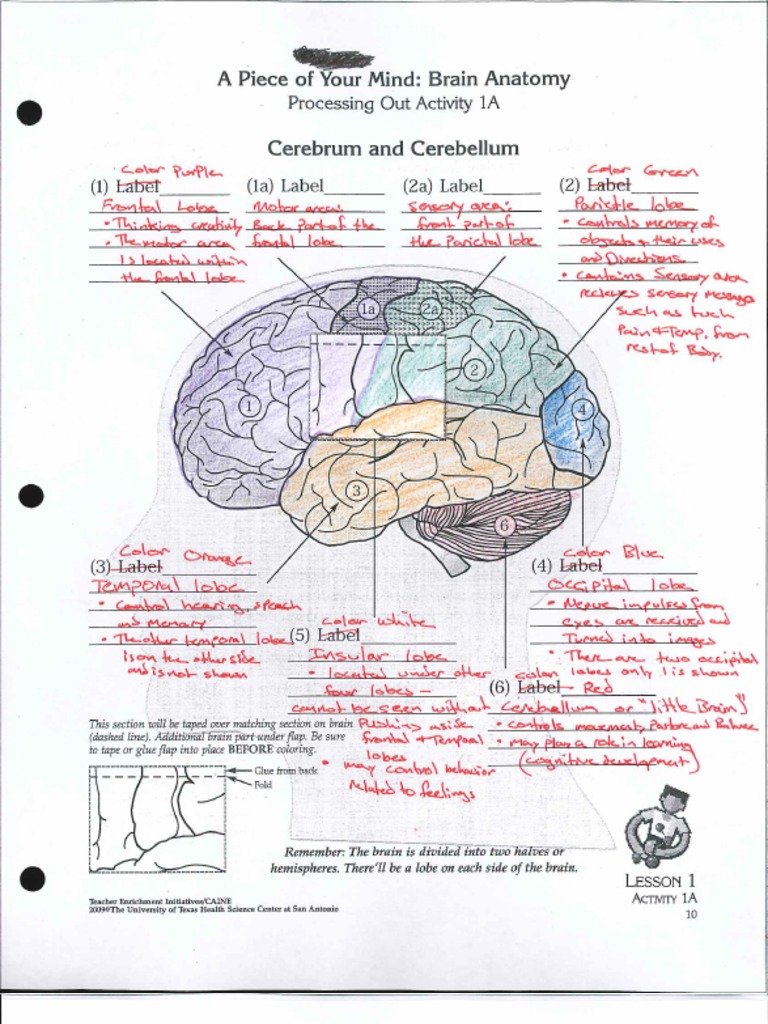 A Piece of Your Mind: Brain Anatomy
Processing Out Activity 1A
Cerebrum and Cerebellum
Color Purple
(1) Label
Frontal Lobe
• Thinking creativity
• The motor area
is located within
the frontal lobe
(1a) Label
Motor area:
Back part of the
frontal lobe
(2a) Label
Sensory area:
front part of
the Parietal lobe
Color Green
(2) Label
lobe
• controls memory of
objects & their uses
and Directions.
• contains Sensory area
recieves sensory
such as
Pain & Temp. from
rest of Body.
1a
2a
1
2
3
4
6
Color Orange
(3) Label
Temporal lobe
• Control hearing, speach
and Memory
• The other temporal lobe
is on the other side
and is not shown
Color White
(5) Label
Insular lobe
• located under other
four lobes –
cannot be seen without
Pushing aside
frontal & Temporal
lobes
• may control behavior
related to feelings
Color Blue
(4) Label
Occipital lobe
• Nerve impulses from
eyes are received and
Turned into images
• There are two occipital
lobes only 1 is shown
color
(6) Label – Red
Cerebellum or "little Brain"
• controls movement, and
• May play a role in learning
(cognitive development)
This section will be taped over matching section on brain
(dashed line). Additional brain part under flap. Be sure
to tape or glue flap into place BEFORE coloring.
Glue from back
Fold
Remember: The brain is divided into two halves or
hemispheres. There'll be a lobe on each side of the brain.
LESSON 1
ACTIVITY 1A
10
Teacher Enrichment Initiatives/CAINE
2009©The University of Texas Health Science Center at San Antonio